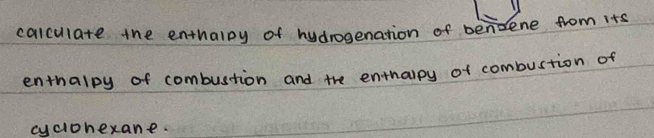 calculate the enthalpy of hydrogenation of benzene from its
enthalpy of combustion and the enthalpy of combustion of
cyclohexane.